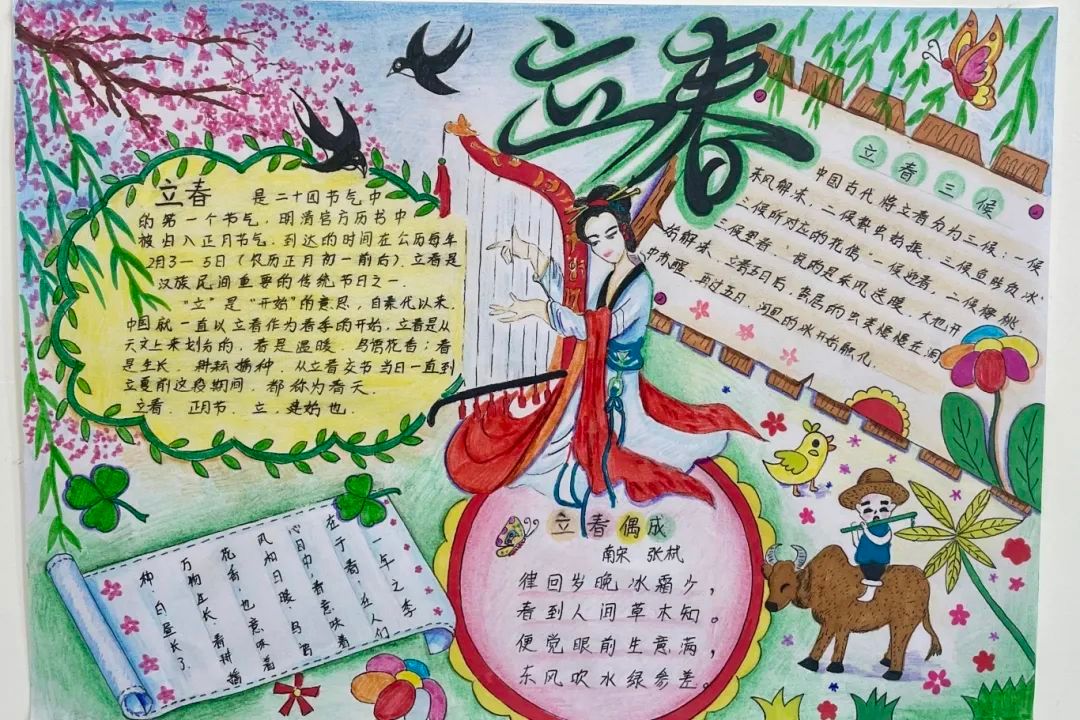 立春
立春 是二十四节气中
的第一个节气，明清官方历书中
被归入正月节气，到达的时间在公历每年
2月3—5日（农历正月初一前后）、立春是
汉族民间重要的传统节日之一.
"立"是"开始"的意思，自秦代以来，
中国就一直以立春作为春季的开始，立春是从
天文上来划分的，春是温暖、鸟语花香；春
是生长、耕耘播种、从立春交节当日一直到
立夏前这段期间，都称为春天.
立春、正月节、立，建始也.
立春三候
中国古代将立春分为三候：一候
东风解冻，二候蛰虫始振，三候鱼陟负冰
三候所对应的花信：一候迎春，二候樱桃，
三候望春；说的是东风送暖，大地开
始解冻、立春五日后，蛰居的虫类慢慢在洞
中苏醒，再过五日，河里的冰开始融化，
一年之季
在于春，在人们
心目中春意味着
风和日暖，鸟语
花香，也意味着
万物生长，春耕播
种，白昼长了.
立春偶成
南宋 张栻
律回岁晚冰霜少，
春到人间草木知。
便觉眼前生意满，
东风吹水绿参差。